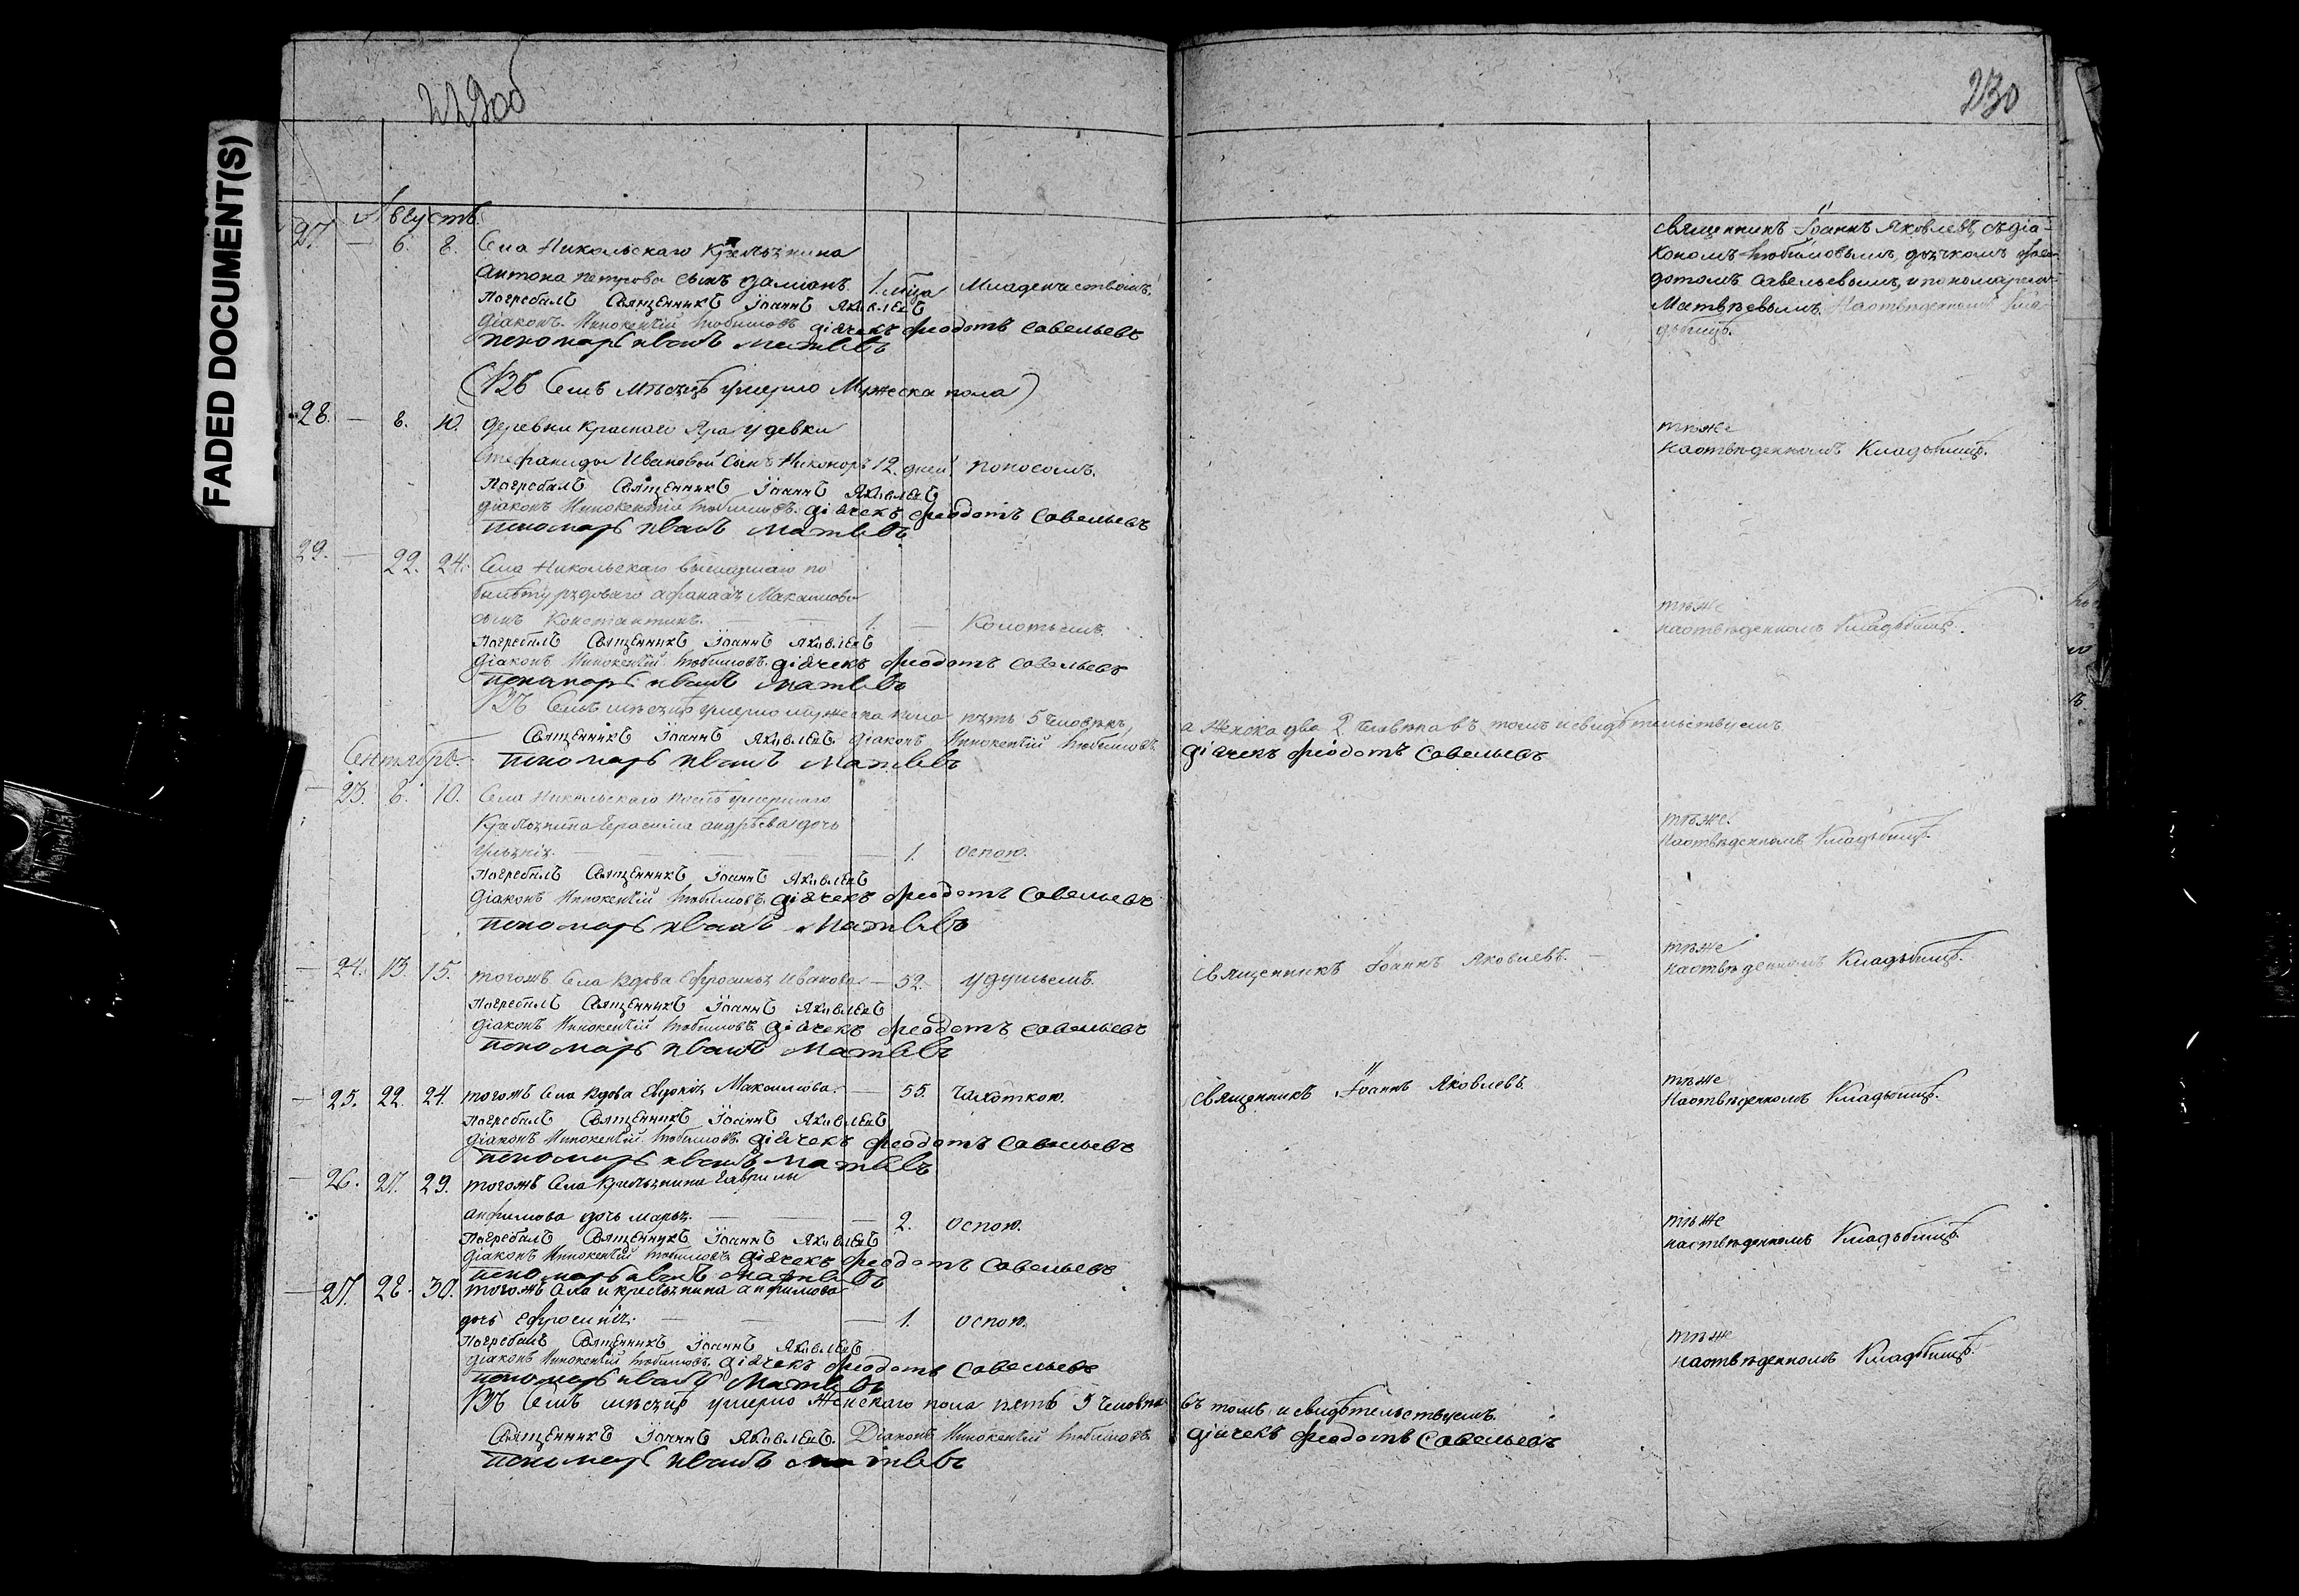 229об
230
FADED DOCUMENT(S)
Августъ
27. — 6. 8. Села Никольскаго Крестьянина
Антона Петрова сынъ Даміанъ. 1. мѣца Младенчествомъ.
Погребалъ Священникъ Іоаннъ Яковлевъ
Діаконъ Иннокентій Любимовъ діячекъ Феодотъ Савельевъ
пономарь Иванъ Матвѣевъ
(Въ Семъ мѣсяцѣ умерло Мужеска пола)
28. — 8. 10. Деревни Краснаго Яра у девки
Стефаниды Ивановой сынъ Никоноръ 12. дней поносомъ.
Погребалъ Священникъ Іоаннъ Яковлевъ
Діаконъ Иннокентій Любимовъ діячекъ Феодотъ Савельевъ
пономарь Иванъ Матвѣевъ
29. — 22. 24. Села Никольскаго вышедшаго по
билѣту рядоваго Афанасія Максимова
сынъ Константинъ. — 1. — Колотьемъ.
Погребалъ Священникъ Іоаннъ Яковлевъ
Діаконъ Иннокентій Любимовъ. діячекъ Феодотъ Савельевъ
пономарь Иванъ Матвѣевъ
Въ Семъ мѣсяцѣ умерло мужеска пола пять 5 человѣкъ,
Священникъ Іоаннъ Яковлевъ. Діаконъ Иннокентій Любимовъ.
пономарь Иванъ Матвѣевъ
Сентябрь.
— 23. 8. 10. Села Никольскаго послѣ умершаго
Крестьянина Герасима Андрѣева дочь
— — — 1. оспою.
Погребалъ Священникъ Іоаннъ Яковлевъ
Діаконъ Иннокентій Любимовъ. діячекъ Феодотъ Савельевъ
пономарь Иванъ Матвѣевъ
— 24. 13. 15. тогожъ Села вдова Ефросинья Иванова — 52. удушьемъ.
Погребалъ Священникъ Іоаннъ Яковлевъ
Діаконъ Иннокентій Любимовъ. діячекъ Феодотъ Савельевъ
пономарь Иванъ Матвѣевъ
— 25. 22. 24. тогожъ Села вдова Евдокія Максимова. — 55. чахоткою.
Погребалъ Священникъ Іоаннъ Яковлевъ
Діаконъ Иннокентій Любимовъ. діячекъ Феодотъ Савельевъ
пономарь Иванъ Матвѣевъ
— 26. 27. 29. тогожъ Села Крестьянина Гаврилы
Анфимова дочь Марья. — — — 2. оспою.
Погребалъ Священникъ Іоаннъ Яковлевъ
Діаконъ Иннокентій Любимовъ діячекъ Феодотъ Савельевъ
пономарь Иванъ Матвѣевъ
— 27. 28. 30. тогожъ Села и крестьянина Анфимова
дочь Ефросинія. — — — 1. оспою.
Погребалъ Священникъ Іоаннъ Яковлевъ
Діаконъ Иннокентій Любимовъ. діячекъ Феодотъ Савельевъ
пономарь Иванъ Матвѣевъ
Въ Семъ мѣсяцѣ умерло Женскаго пола пять 5 человѣкъ
Священникъ Іоаннъ Яковлевъ. Діаконъ Иннокентій Любимовъ.
пономарь Иванъ Матвѣевъ
священникъ Іоаннъ Яковлевъ, съ діа-
кономъ Любимовымъ, дьячкомъ Фео-
дотомъ Савельевымъ, и пономаремъ
Матвѣевымъ. На отведенномъ кла-
дбищѣ.
тѣже
на отведенномъ Кладбищѣ.
тѣже
на отведенномъ Кладбищѣ.
а Женска два 2 человѣка въ томъ и свидѣтельствуемъ
діячекъ Феодотъ Савельевъ
тѣже.
На отведенномъ Кладбищѣ.
священникъ Іоаннъ Яковлевъ. — тѣже
на отведенномъ Кладбищѣ.
священникъ Іоаннъ Яковлевъ. тѣже
На отведенномъ Кладбищѣ.
тѣже
на отведенномъ Кладбищѣ.
тѣже
на отведенномъ Кладбищѣ.
въ томъ и свидѣтельствуемъ.
діячекъ Феодотъ Савельевъ